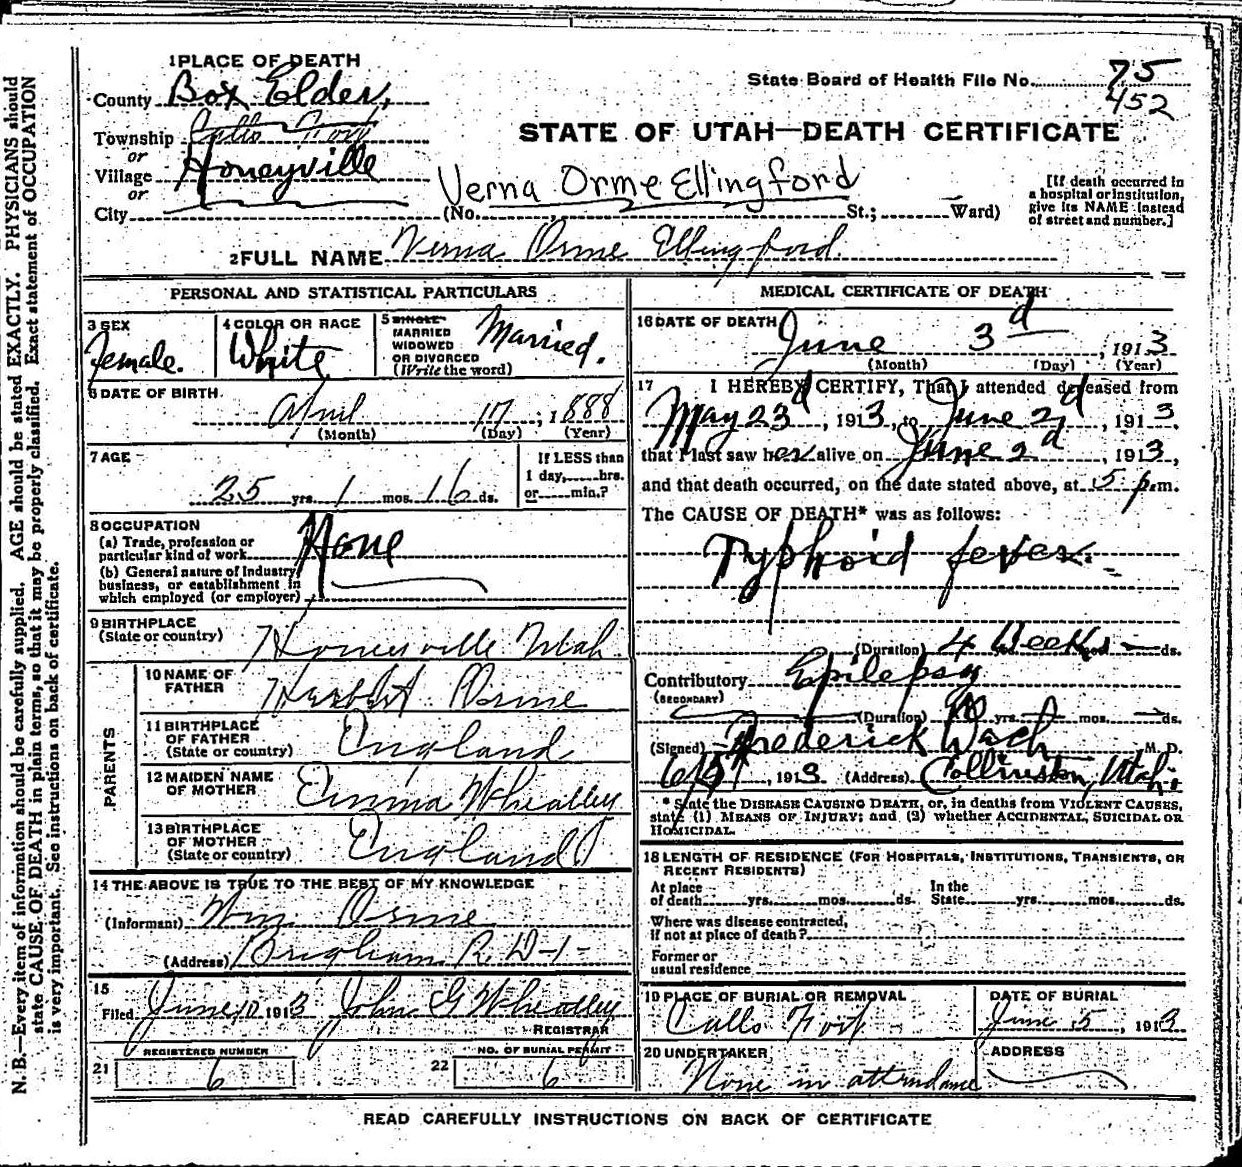 1 PLACE OF DEATH
State Board of Health File No. 75
452
County Box Elder,
Township Calls Fort
or
Village Honeyville
or
City
STATE OF UTAH—DEATH CERTIFICATE
Verna Orme Ellingford
(No. St.; Ward)
[If death occurred in
a hospital or institution,
give its NAME instead
of street and number.]
2 FULL NAME Verna Orme Ellingford.
PERSONAL AND STATISTICAL PARTICULARS
3 SEX
Female.
4 COLOR OR RACE
White
5 SINGLE
MARRIED
WIDOWED
OR DIVORCED
(Write the word)
Married.
6 DATE OF BIRTH
April 17, 1888
(Month) (Day) (Year)
7 AGE
25 yrs. 1 mos. 16 ds.
If LESS than
1 day, hrs.
or min.?
8 OCCUPATION
(a) Trade, profession or
particular kind of work
None
(b) General nature of Industry,
business, or establishment in
which employed (or employer)
9 BIRTHPLACE
(State or country)
Honeyville Utah.
PARENTS
10 NAME OF
FATHER
Herbert Orme
11 BIRTHPLACE
OF FATHER
(State or country)
England
12 MAIDEN NAME
OF MOTHER
Emma Wheatley
13 BIRTHPLACE
OF MOTHER
(State or country)
England
14 THE ABOVE IS TRUE TO THE BEST OF MY KNOWLEDGE
(Informant) Wm. Orme
(Address) Brigham R. D-1-
15
Filed June 10 1913 John G Wheatley
REGISTRAR
21 REGISTERED NUMBER
6
22 NO. OF BURIAL PERMIT
6
MEDICAL CERTIFICATE OF DEATH
16 DATE OF DEATH
June 3d, 1913
(Month) (Day) (Year)
17 I HEREBY CERTIFY, That I attended deceased from
May 23d, 1913, to June 2d, 1913.
that I last saw her alive on June 2d, 1913,
and that death occurred, on the date stated above, at 5 p.m.
The CAUSE OF DEATH* was as follows:
Typhoid fever.
(Duration) 4 Weeks ds.
Contributory Epilepsy
(SECONDARY)
(Duration) yrs. mos. ds.
(Signed) Frederick Wach M. D.
, 1913 (Address) Collinston, Utah.
* State the DISEASE CAUSING DEATH, or, in deaths from VIOLENT CAUSES,
state (1) MEANS OF INJURY; and (2) whether ACCIDENTAL, SUICIDAL OR
HOMICIDAL.
18 LENGTH OF RESIDENCE (FOR HOSPITALS, INSTITUTIONS, TRANSIENTS, OR
RECENT RESIDENTS)
At place
of death yrs. mos. ds.
In the
State yrs. mos. ds.
Where was disease contracted,
if not at place of death?
Former or
usual residence
19 PLACE OF BURIAL OR REMOVAL
Calls Fort
DATE OF BURIAL
June 5, 1913
20 UNDERTAKER
None in attendance
ADDRESS
READ CAREFULLY INSTRUCTIONS ON BACK OF CERTIFICATE
N. B.—Every item of information should be carefully supplied. AGE should be stated EXACTLY. PHYSICIANS should
state CAUSE OF DEATH in plain terms, so that it may be properly classified. Exact statement of OCCUPATION
is very important. See instructions on back of certificate.